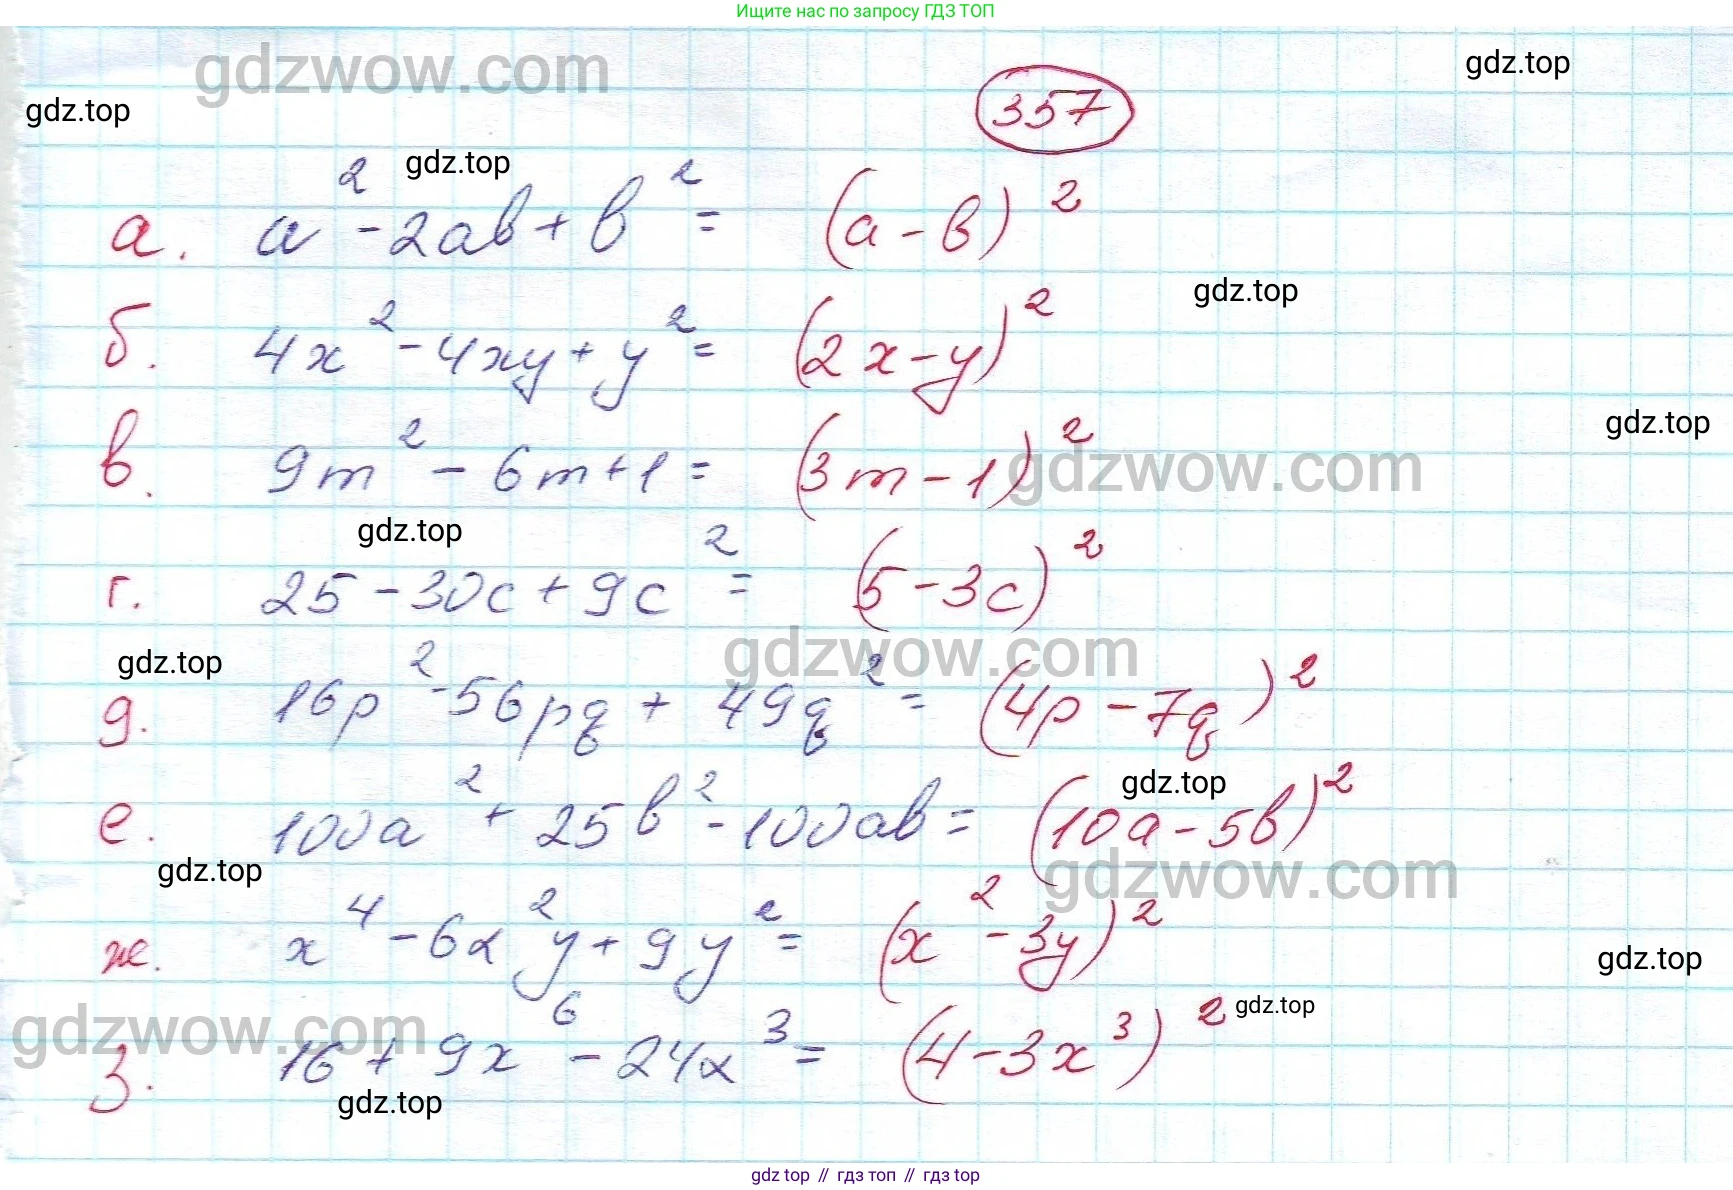 Ищите нас по запросу ГДЗ ТОП
gdzwow.com
gdz.top
gdz.top
357
gdz.top
а. a² - 2ab + b² = (a - b)²
gdz.top
б. 4x² - 4xy + y² = (2x - y)²
gdz.top
в. 9m² - 6m + 1 = (3m - 1)²
gdzwow.com
gdz.top
г. 25 - 30c + 9c² = (5 - 3c)²
gdzwow.com
gdz.top
д. 16p² - 56pq + 49q² = (4p - 7q)²
gdz.top
е. 100a² + 25b² - 100ab = (10a - 5b)²
gdz.top
gdzwow.com
ж. x⁴ - 6x²y + 9y² = (x² - 3y)²
gdz.top
gdz.top
gdzwow.com
з. 16 + 9x⁶ - 24x³ = (4 - 3x³)²
gdz.top
gdz top // гдз топ // гдз top